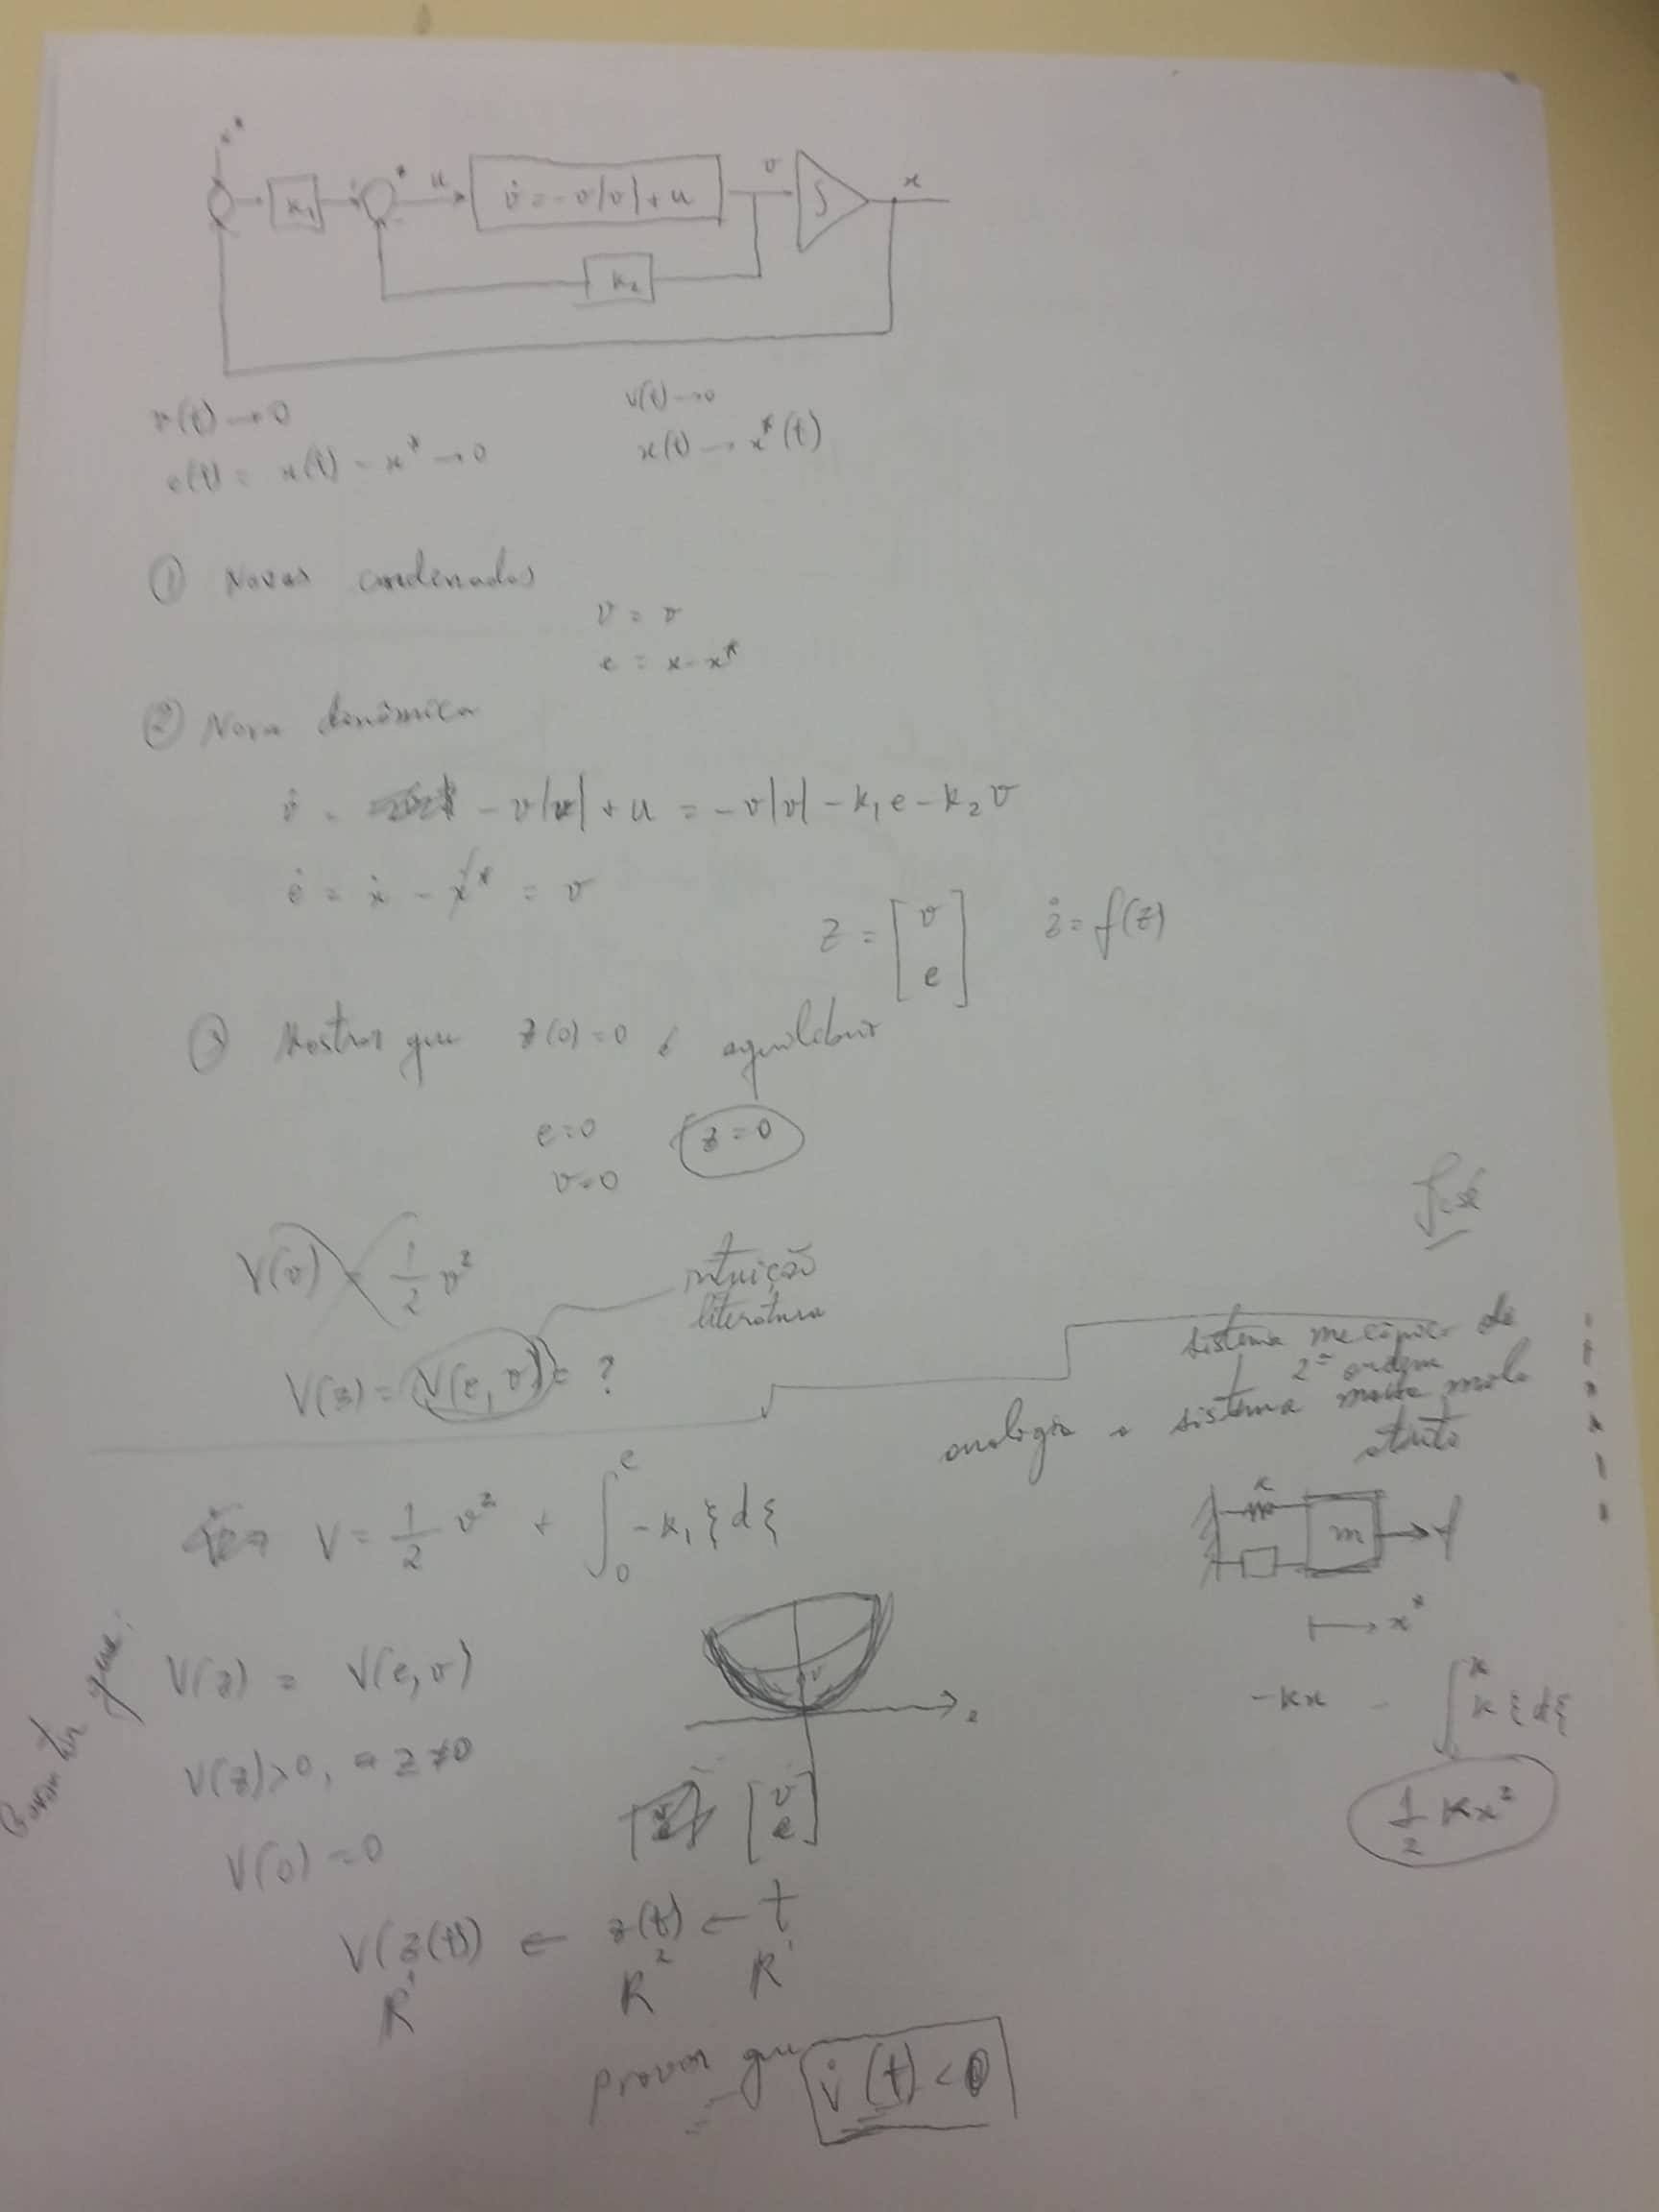 x*
k₁ u v̇ = -v|v| + u v ∫ x
k₂
v(t) → 0 v(t) → 0
e(t) = x(t) - x* → 0 x(t) → x*(t)
① Novas coordenadas
v = v
e = x - x*
② Nova dinâmica
v̇ = - v|v| + u = - v|v| - k₁e - k₂v
ė = ẋ - ẋ* = v
z = [v e] ż = f(z)
③ Mostrar que z(0) = 0 é equilibrio
e = 0 z = 0
v = 0
V(v) = 1/2 v²
intuição
literatura
V(z) = V(e, v) = ?
sistema mecânico de
2ª ordem
analogia o sistema massa mola
V = 1/2 v² + ∫₀ᵉ -k₁ ξ dξ
k m f
x*
que:
V(z) = V(e, v)
e
-kx - ∫ˣ k ξ dξ
V(z) > 0, z ≠ 0
1/2 kx²
[v e]
V(0) = 0
V(z(t)) ← z(t) ← t
R¹ R² R¹
provar que V̇(t) < 0